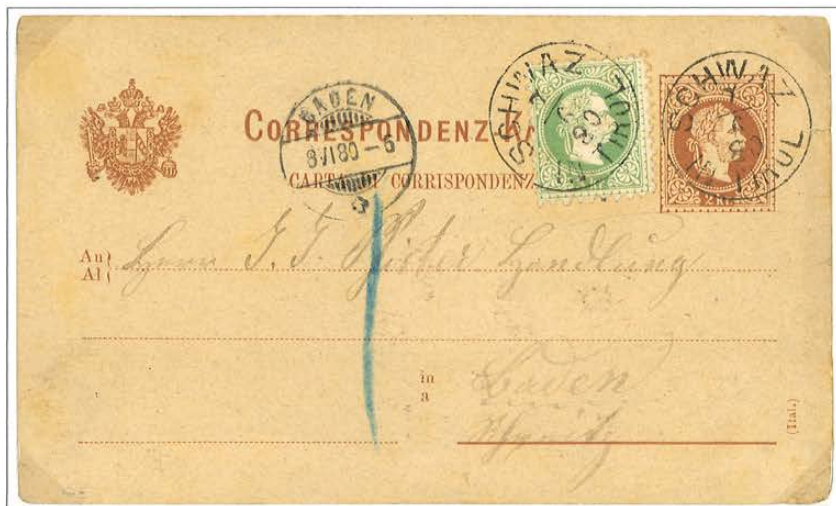 CORRESPONDENZ-KA
CARTA DI CORRISPONDENZ
BADEN
8 VI 80 - 6
SCHWAZ
TIROL
SCHWAZ
TIROL
2 KR
An
Al
Herrn J. J. Handlung
in
a
Baden
Schweiz
(Ital.)